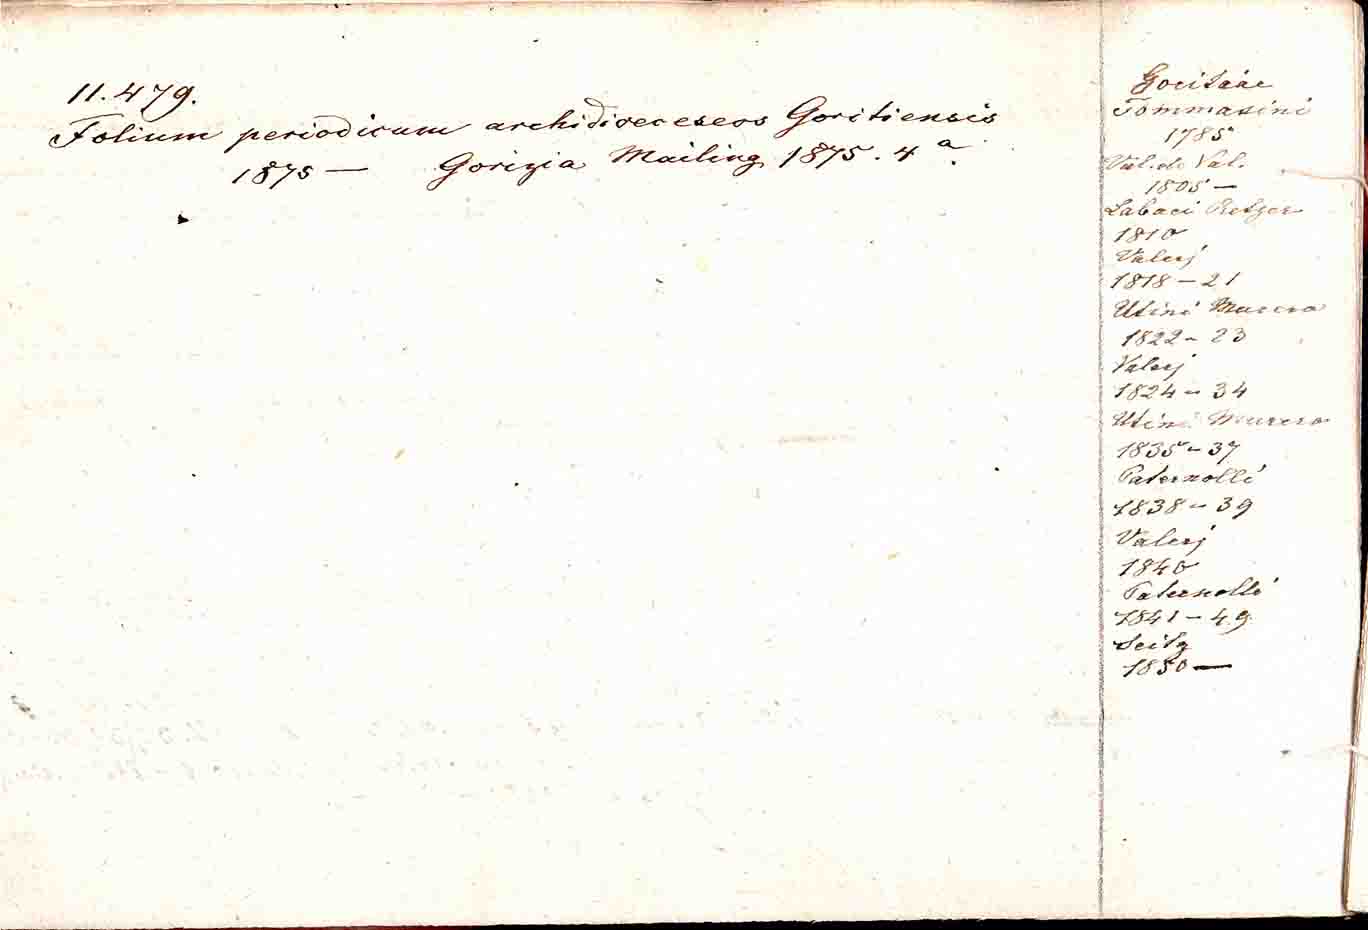 11.479.
Folium periodicum archidioeceseos Goritiensis
1875 — Gorizia Mailing 1875. 4a.
Goritiae
Tommasini
1785
Val. de Val.
1805 —
Labaci Retzer
1810
Valerj
1818 – 21
Utini Murero
1822 – 23
Valerj
1824 – 34
Utini Murero
1835 – 37
Paternolli
1838 – 39
Valerj
1840
Paternolli
1841 – 49
Seitz
1850 —